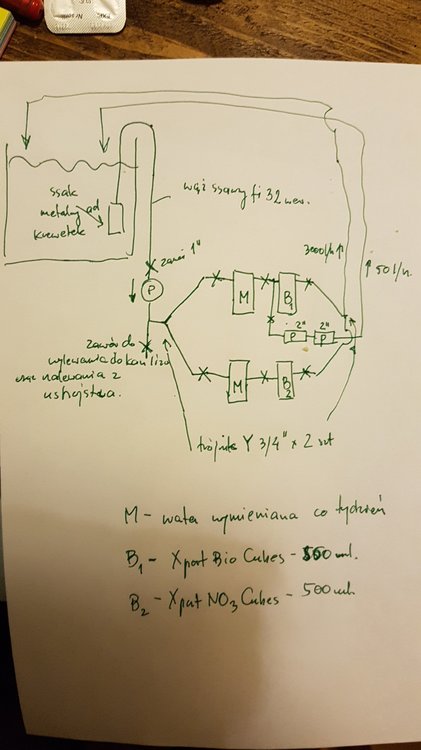 ssak
metalny od
krewetek
wąż ssawny fi 32 wew.
zawór 1"
P
3000l/h
50 l/h.
M
B1
2"
2"
P
P
zawór do
wylewania do kanaliz
oraz nalewania z
ustrojstwa.
M
B2
trójnik Y 3/4" x 2 szt
M - wata wymieniana co tydzień
B1 - Xport Bio Cubes - 500 ml.
B2 - Xport NO3 Cubes - 500 ml.